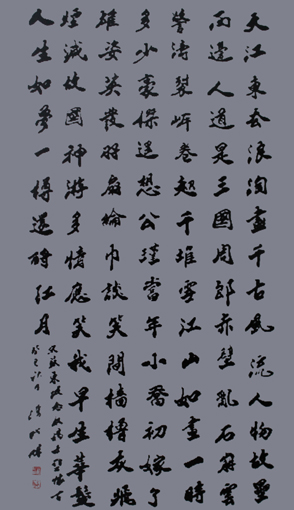 大江東去浪淘盡千古風流人物故壘
西邊人道是三國周郎赤壁亂石崩雲
驚濤裂岸卷起千堆雪江山如畫一時
多少豪傑遙想公瑾當年小喬初嫁了
雄姿英發羽扇綸巾談笑間檣櫓灰飛
煙滅故國神游多情應笑我早生華髮
人生如夢一樽還酹江月